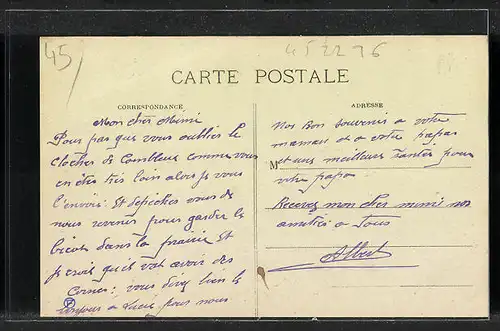 45
452276
CARTE POSTALE
CORRESPONDANCE
ADRESSE
Mon cher Mimi
Pour pas que vous oubliez le
clocher de Combleux comme vous
en ête très loin alors je vous
l'envoie: Et depeches vous de
nous revenir pour garder le
bicot dans la prairie Et
je crois qu'il vat avoir des
Cornes: vous direz bien le
bonjour a Lucie pour nous
Nos Bon souvenir a votre
maman et a votre papa
M
et une meilleure santée pour
votre papa
Recevez mon cher mimi nos
amitiés a Tous
Albert